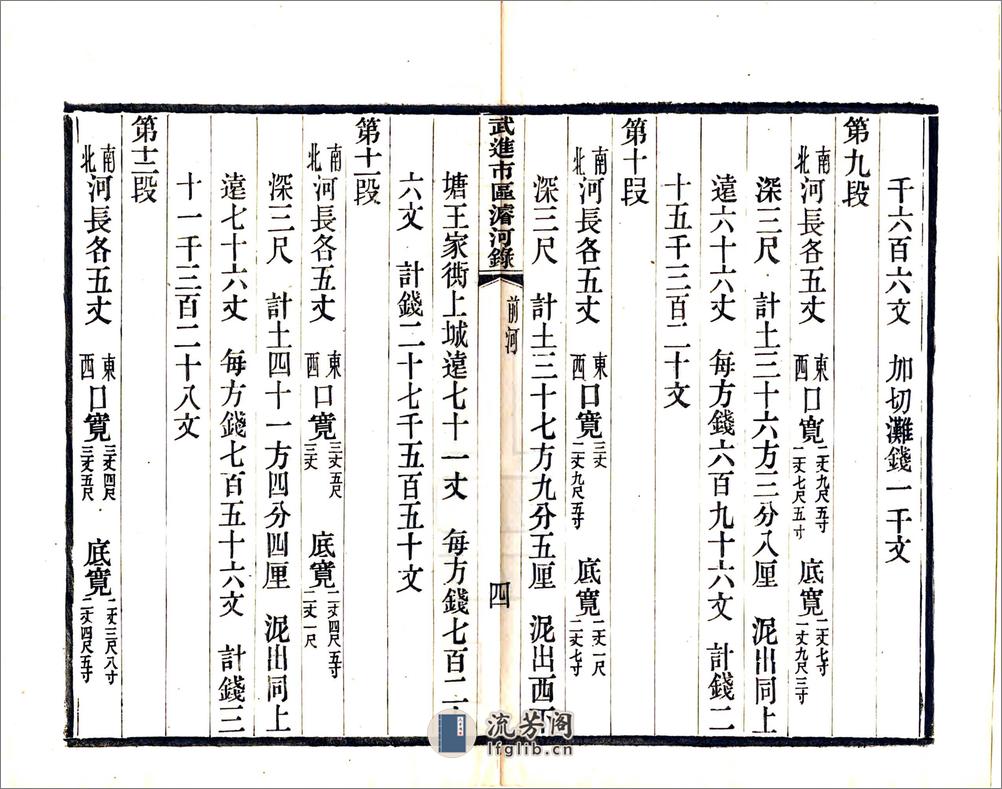 千六百六文　加切灘錢一千文
第九段
南北河長各五丈　東西口寬二丈九尺五寸二丈七尺五寸　底寬二丈七寸一丈九尺三寸
深三尺　計土三十六方三分八厘　泥出同上
遠六十六丈　每方錢六百九十六文　計錢二
十五千三百二十文
第十段
南北河長各五丈　東西口寬三丈二丈九尺五寸　底寬二丈一尺二丈七寸
深三尺　計土三十七方九分五厘　泥出西下
武進市區濬河錄　前河　四
塘王家衖上城遠七十一丈　每方錢七百二十
六文　計錢二十七千五百五十文
第十一段
南北河長各五丈　東西口寬三丈五尺三丈　底寬二丈四尺五寸二丈一尺
深三尺　計土四十一方四分四厘　泥出同上
遠七十六丈　每方錢七百五十六文　計錢三
十一千三百二十八文
第十二段
南北河長各五丈　東西口寬三丈四尺三丈五尺　底寬二丈三尺八寸二丈四尺五寸
流芳阁
lfglib.cn